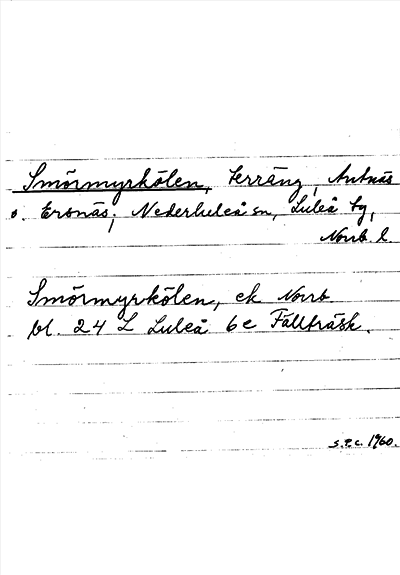 Smörmyrkölen, terräng, Antnäs
o. Ersnäs, Nederluleå sn, Luleå tg,
Norrb. l.
Smörmyrkölen, ek Norrb
bl. 24 L Luleå 6e Fällträsk.
S.P.C. 1960.